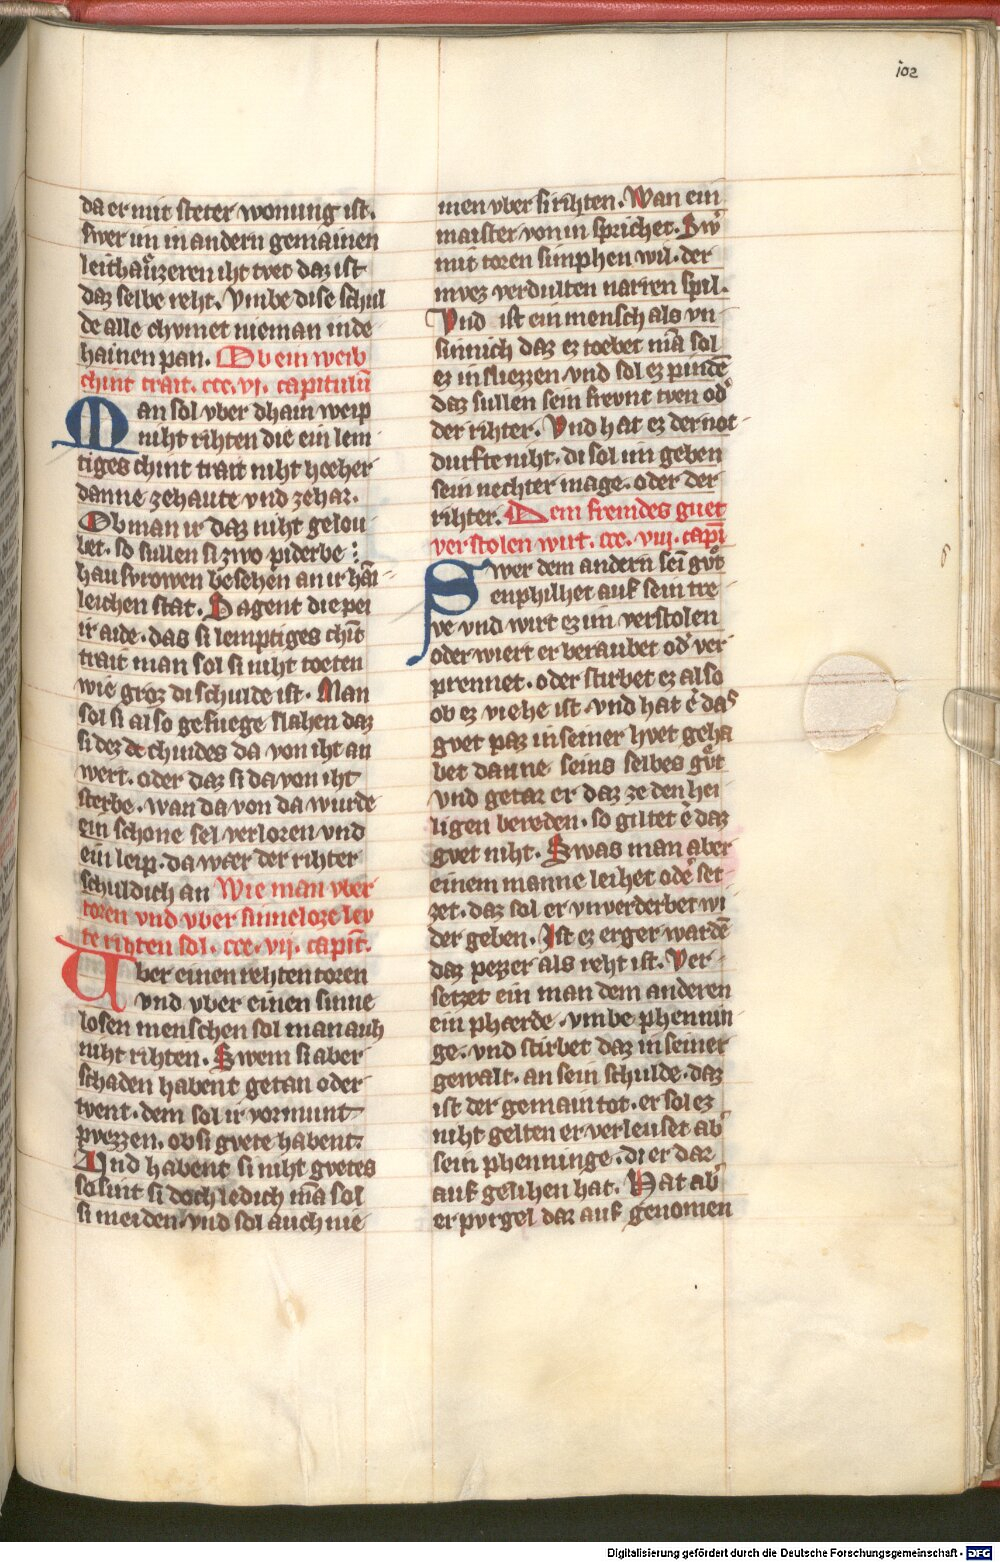 102
da er mit steter wonung ist.
swer im in andern gemainen
leithaͮuzeren iht tvet daz ist
daz selbe reht. Vmbe dise schul
de alle chvmet nieman in de
hainen pan. Ob ein weib
chint trait. ccc. vi. capitulū
Man sol vber dhain weip
niht rihten die ein lem
tiges chint trait niht hoeher
danne ze haute vnd ze har.
Ob man ir daz niht gelou
bet. so sullen si zwo piderbe
hausvrowen besehen an ir hāi
leichen stat. Sagent die pei
ir aide. das si lemptiges chīt
trait man sol si niht toeten
wie groz di schulde ist. Man
sol si also gefuege slahen daz
si dez chindes da von iht an
wert. oder daz si da von iht
sterbe. wan da von da wurde
ein schone sel verloren vnd
ein leip. da waer der rihter
schuldich an Wie man vber
toren vnd vber sinneloze lev
te rihten sol. ccc. vii. capit̄.
Uber einen rehten toren
vnd vber einen sinne
losen menschen sol man auh
niht rihten. Swem si aber
schaden habent getan oder
tvent. dem sol ir vormunt
pvezzen. ob si gvete habent.
Und habent si niht gvetes
so sint si doch ledich mā sol
si meiden vnd sol auch nie
men vber si rihten. Wan ein
maister von in sprichet. Sw̾
mit toren schimphen wil. der
mvez verdulten narren spil.
Vnd ist ein mensch als vn
sinnich daz ez toebet mā sol
ez in sliezzen vnd sol ez pindē
daz sullen sein frevnt tven od̾
der rihter. Vnd hat ez der not
durfte niht. di sol im geben
sein nechster mage. oder der
rihter. Dem fremdes guet
verstolen wirt. ccc. viii. capi̅
Swer dem andern sei̅ gvͦt
enphilhet auf sein tre
ve vnd wirt ez im verstolen
oder wiert er beraubet od̾ ver
prennet. oder stirbet ez also
ob ez viehe ist vnd hat e̾ das
gvet paz in seiner hvet geha
bet danne seins selbes gvͦt
vnd getar er daz ze den hei
ligen bereden. so giltet e̾ daz
gvet niht. Swas man aber
einem manne leihet ode̾ set
zet. daz sol er vnverderbet wi
der geben. Ist ez erger wardē
daz pezzer als reht ist. Ver
setzet ein man dem anderen
ein phaerde vmbe phennin
ge. vnd stirbet daz in seiner
gewalt. an sein schulde. daz
ist der gemain tot. er sol ez
niht gelten er verleuset ab̾
sein phenninge. di er dar
auf gelihen hat. Hat ab̾
er pvrgel dar auf genomen
Digitalisierung gefördert durch die Deutsche Forschungsgemeinschaft - DFG